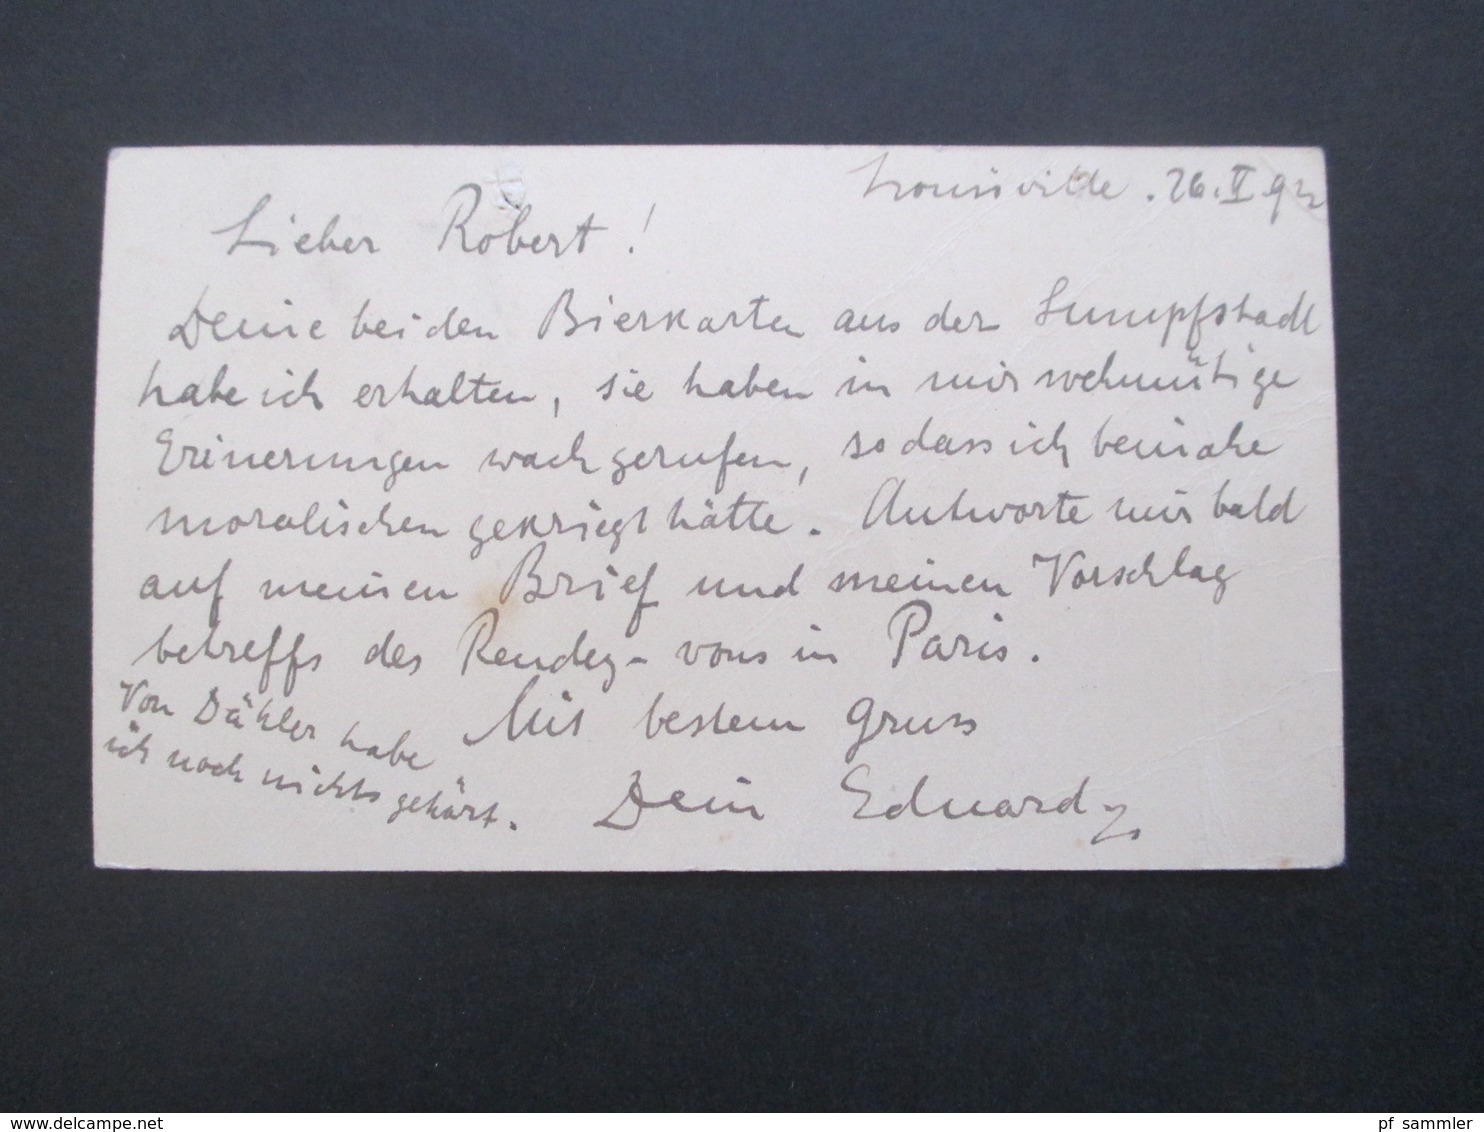 Louisville. 26.II.92
Lieber Robert!
Deine beiden Bierkarten aus der Sumpfstadt
habe ich erhalten, sie haben in mir wehmütige
Erinerungen wach gerufen, so dass ich beinahe
moralischen gekriegt hätte. Antworte mir bald
auf meinen Brief und meinen Vorschlag
betreffs des Rendez-vous in Paris.
Mit bestem Gruss
Dein Eduard
Von Dähler habe
ich noch nichts gehört.
pf_sammler